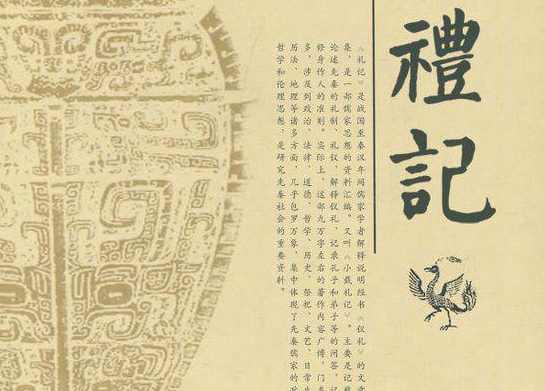 禮記
《礼记》是战国至秦汉年间儒家学者解释说明经书《仪礼》的文
集，是一部儒家思想的资料汇编。又叫《小戴礼记》。主要是记
论述先秦的礼制、礼仪，解释仪礼，记录孔子和弟子等的问答，
修身作人的准则。实际上，这部九万字左右的著作内容广博，门
多，涉及到政治、法律、道德、哲学、历史、祭祀、文艺、日常
历法、地理等诸多方面，几乎包罗万象，集中体现了先秦儒家的
哲学和伦理思想，是研究先秦社会的重要资料。